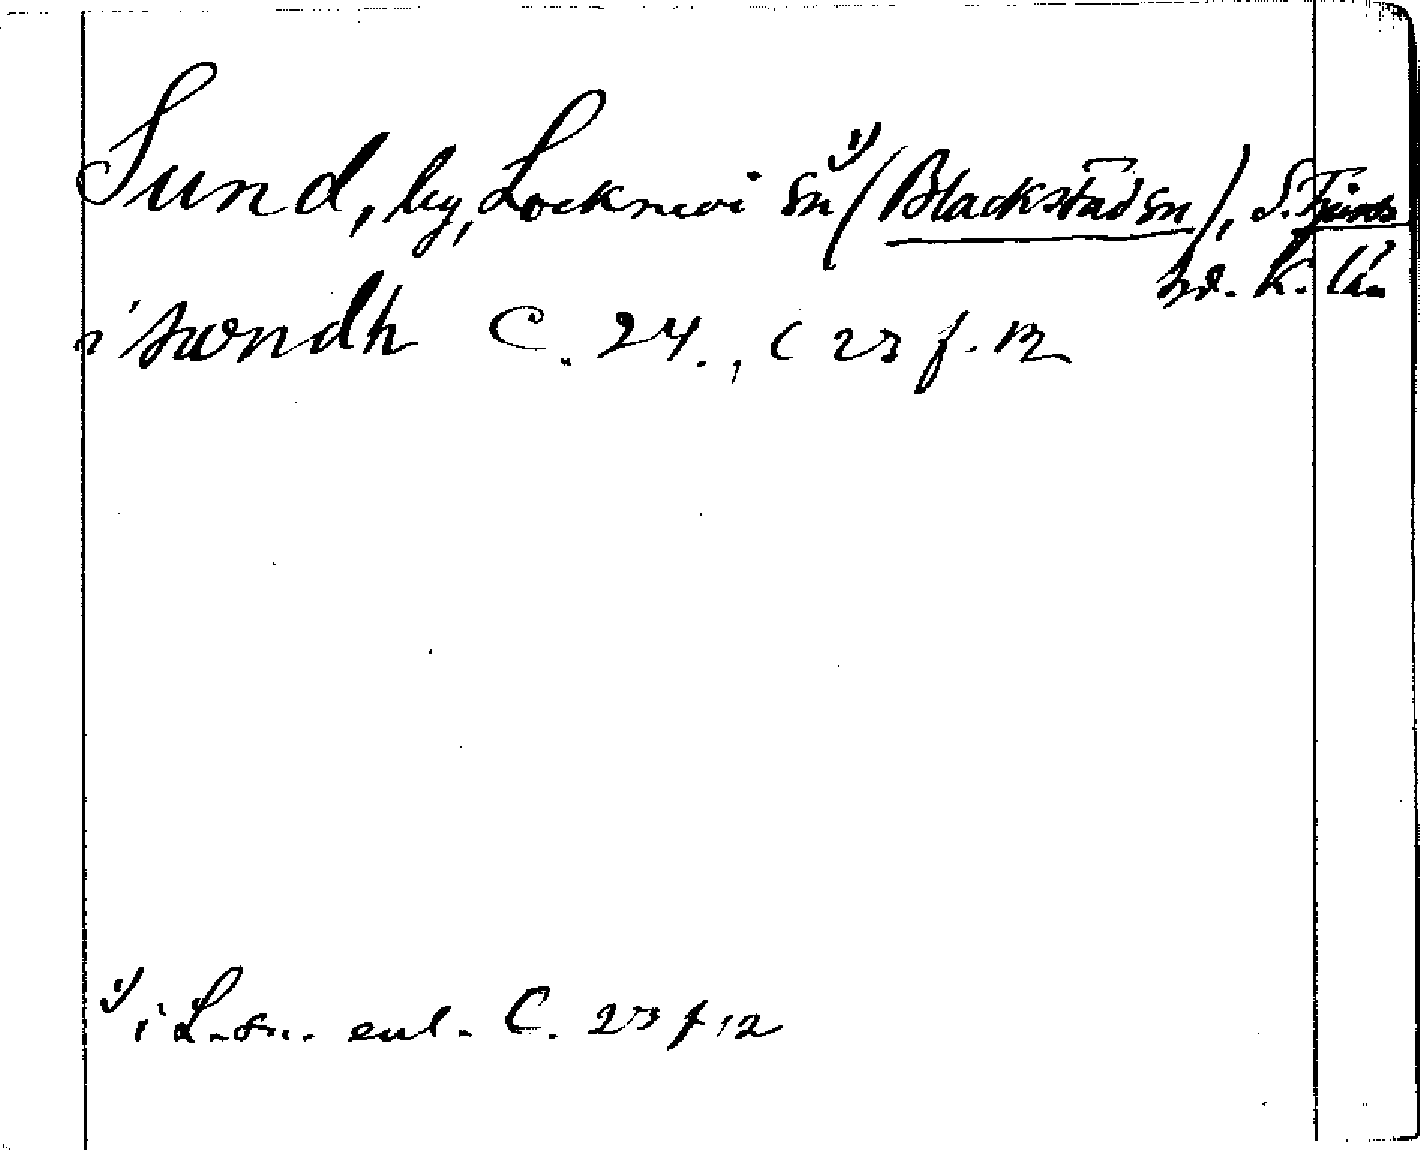 Sund, by, Locknevi sn¹⁾ (Blackstad sn), S. Tjusts
hd. K. län
i swndh C. 24., C 23 f. 12
¹⁾ i L. sn. enl. C. 23 f 12